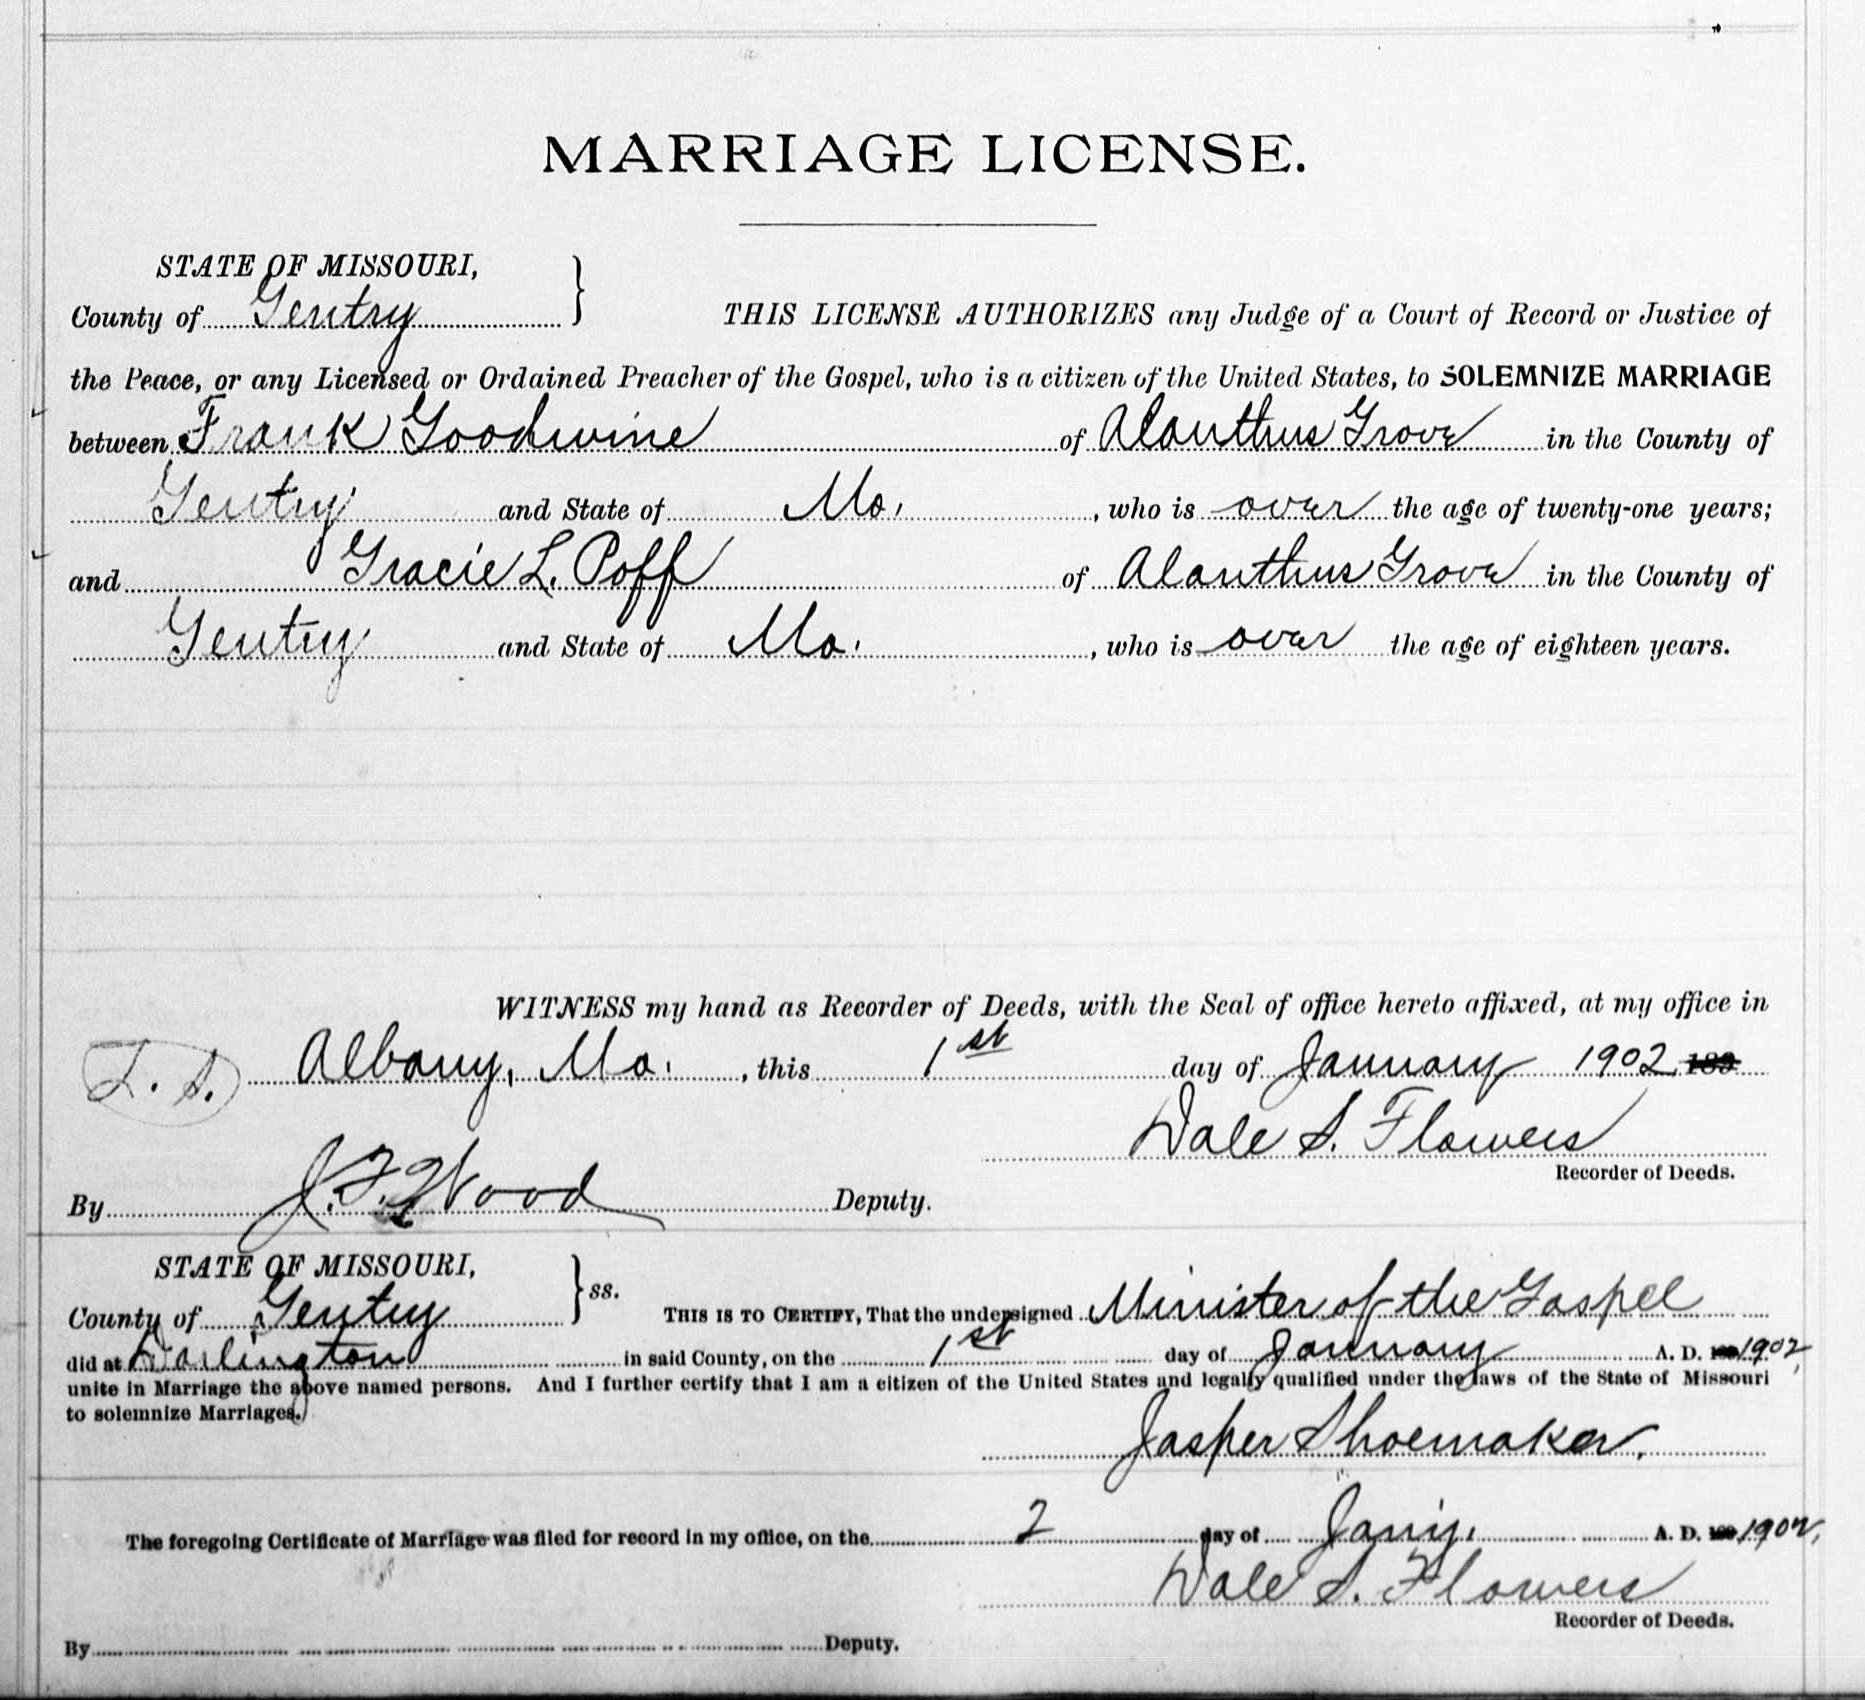 MARRIAGE LICENSE.
STATE OF MISSOURI,
County of Gentry } THIS LICENSE AUTHORIZES any Judge of a Court of Record or Justice of
the Peace, or any Licensed or Ordained Preacher of the Gospel, who is a citizen of the United States, to SOLEMNIZE MARRIAGE
between Frank Goodwine of Alanthus Grove in the County of
Gentry and State of Mo. , who is over the age of twenty-one years;
and Gracie L. Poff of Alanthus Grove in the County of
Gentry and State of Mo. , who is over the age of eighteen years.
WITNESS my hand as Recorder of Deeds, with the Seal of office hereto affixed, at my office in
L. S. Albany, Mo. , this 1st day of January 1902 189
Dale S. Flowers
Recorder of Deeds.
By J. F. Wood Deputy.
STATE OF MISSOURI,
County of Gentry } ss. THIS IS TO CERTIFY, That the undersigned Minister of the Gospel
did at Darlington in said County, on the 1st day of January A. D. 1902,
unite in Marriage the above named persons. And I further certify that I am a citizen of the United States and legally qualified under the laws of the State of Missouri
to solemnize Marriages.
Jasper Shoemaker,
The foregoing Certificate of Marriage was filed for record in my office, on the 2 day of Jany. A. D. 1902,
Dale S. Flowers
Recorder of Deeds.
By Deputy.